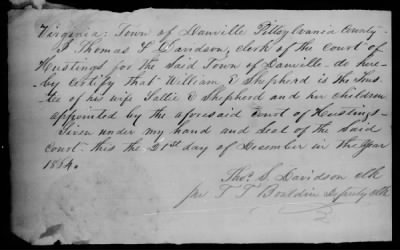 Virginia: Town of Danville Pittsylvania County-
I Thomas S Davidson, clerk of the Court of
Hustings for the Said Town of Danville- do here-
by certify that William E Shepherd is the Trus-
tee of his wife Sallie E Shepherd and her children
appointed by the aforesaid Court of Heustings-
Given under my hand and Seal of the Said
Court- this the 21st day of December in the Year
1864.
Thos. S. Davidson clk
per T T Bouldin Deputy clk